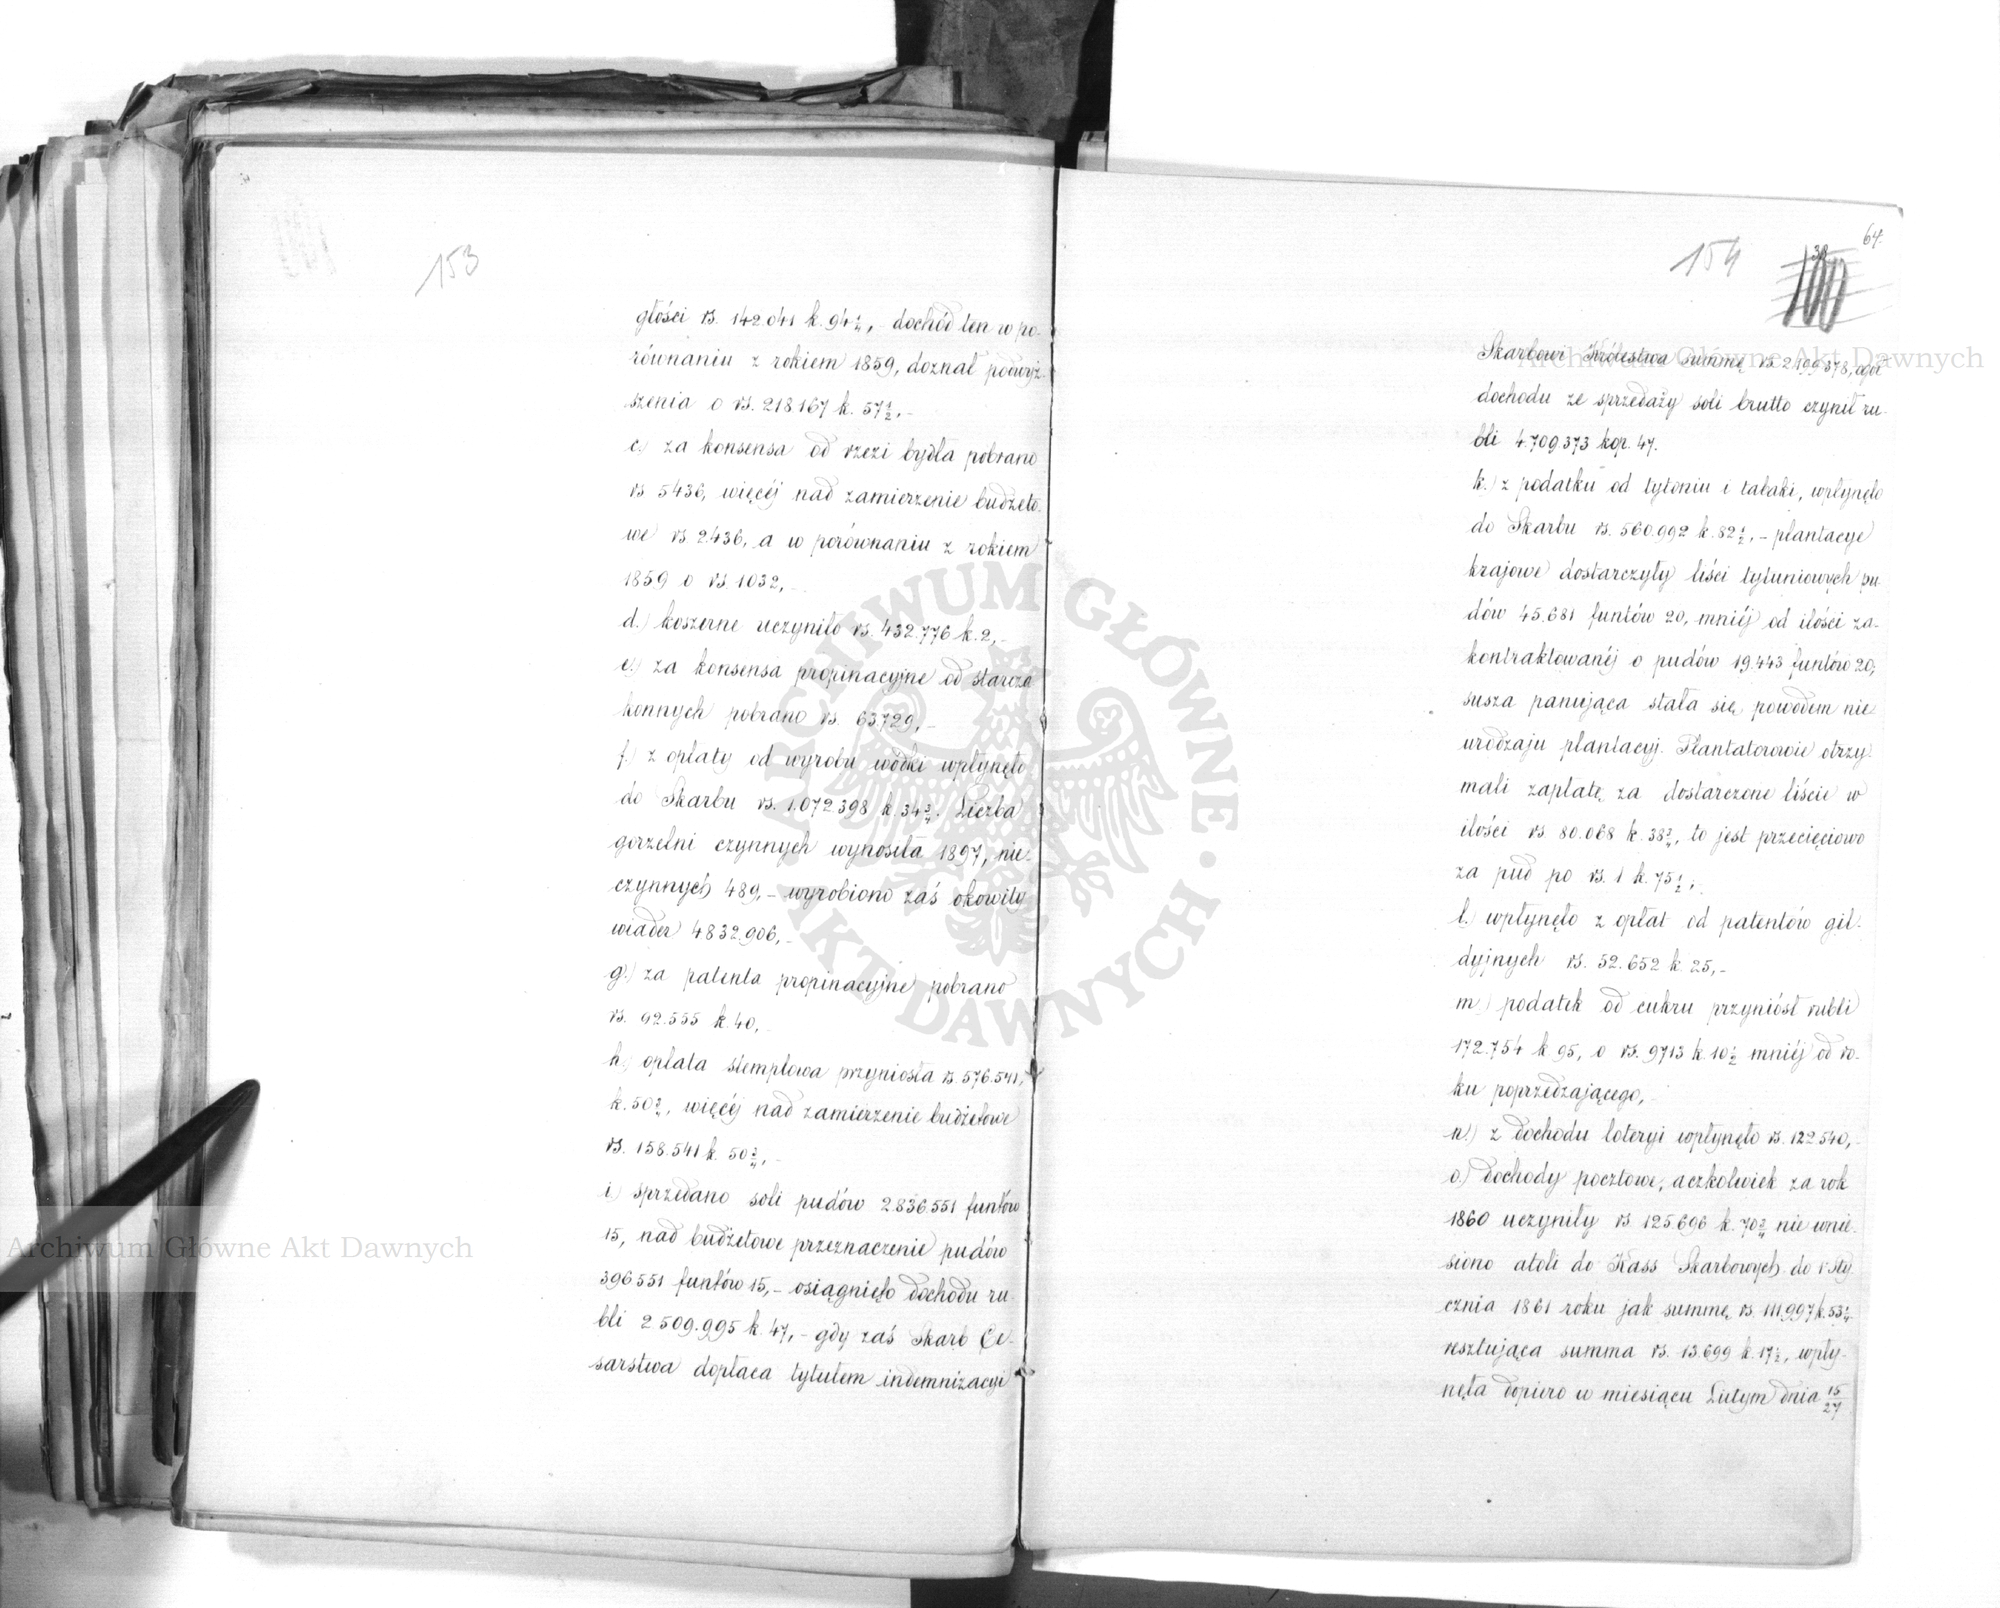 153
głości rs. 142.041 k. 94½, dochód ten w po-
równaniu z rokiem 1859, doznał podwyż-
szenia o rs. 218.167 k. 57½,-
c.) za konsensa od rzezi bydła pobrano
rs 5436, więcéj nad zamierzenie budżeto-
we rs. 2436, a w porównaniu z rokiem
1859 o rs 1032,-
d.) koszerne uczyniło rs. 432.776 k. 2,-
e.) za konsensa propinacyjne od staroza
konnych pobrano rs. 63729,-
f.) z opłaty od wyrobu wódki wpłynęło
do Skarbu rs. 1.072.398 k. 34¾. Liczba
gorzelni czynnych wynosiła 1897, nie-
czynnych 489,- wyrobiono zaś okowity
wiader 4832.906,-
g.) za patenta propinacyjne pobrano
rs. 92.555 k. 40,-
h.) opłata stemplowa przyniosła rs. 576.541,
k. 50¾, więcéj nad zamierzenie budżetowe
rs. 158.541 k. 50¾,-
i.) sprzedano soli pudów 2.836.551 funtów
15, nad budżetowe przeznaczenie pudów
396551 funtów 15,- osiągnięto dochodu ru-
bli 2.509.995 k. 47,- gdy zaś Skarb Ce-
sarstwa dopłaca tytułem indemnizacyi
154
64.
100
Skarbowi Królestwa summę rs 2.199.378, ogół
dochodu ze sprzedaży soli brutto czynił ru-
bli 4.709.373 kop. 47.
k.) z podatku od tytoniu i tabaki, wpłynęło
do Skarbu rs. 560.992 k. 82½,- plantacye
krajowe dostarczyły liści tytuniowych pu-
dów 45.681 funtów 20, mniéj od ilości za-
kontraktowanéj o pudów 19.443 funtów 20;
susza panująca stała się powodem nie
urodzaju plantacyj. Plantatorowie otrzy-
mali zapłatę za dostarczone liście w
ilości rs 80.068 k. 38¾, to jest przecięciowo
za pud po rs. 1 k. 75½,-
l.) wpłynęło z opłat od patentów gil-
dyjnych rs. 52.652 k 25,-
m.) podatek od cukru przyniósł rubli
172.754 k. 95, o rs. 9713 k. 10½ mniéj od ro-
ku poprzedzającego,-
n.) z dochodu loteryi wpłynęło rs. 122.540,-
o.) dochody pocztowe, aczkolwiek za rok
1860 uczyniły rs 125.696 k. 70¾ nie wnie-
siono atoli do Kass Skarbowych do 1 Sty-
cznia 1861 roku jak summę rs. 111.997 k. 53¼
resztująca summa rs. 13.699 k. 17½, wpły-
nęła dopiero w miesiącu Lutym dnia 15/27
Archiwum Główne Akt Dawnych
Archiwum Główne Akt Dawnych
ARCHIWUM GŁÓWNE · AKT DAWNYCH ·